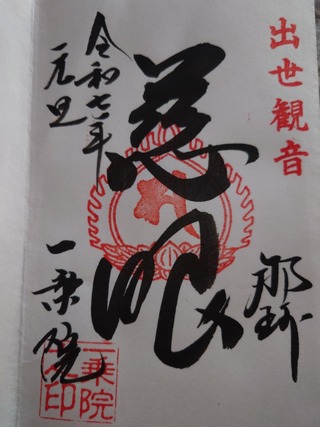 出世観音
那珂
慈眼
令和七年
元旦
一乗院
一乗院